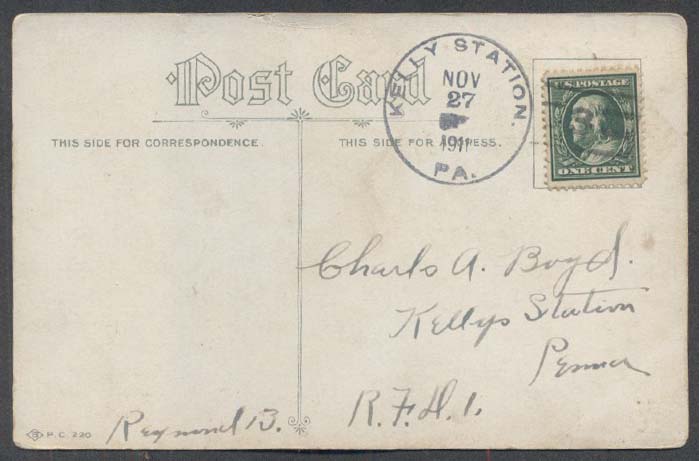 Post Card
THIS SIDE FOR CORRESPONDENCE.
THIS SIDE FOR ADDRESS.
KELLY STATION.
NOV
27
1911
PA.
U.S. POSTAGE
ONE CENT
Charls A. Boyd.
Kellys Station
Penna
R.F.D.1.
P.C. 220
Raymond B.